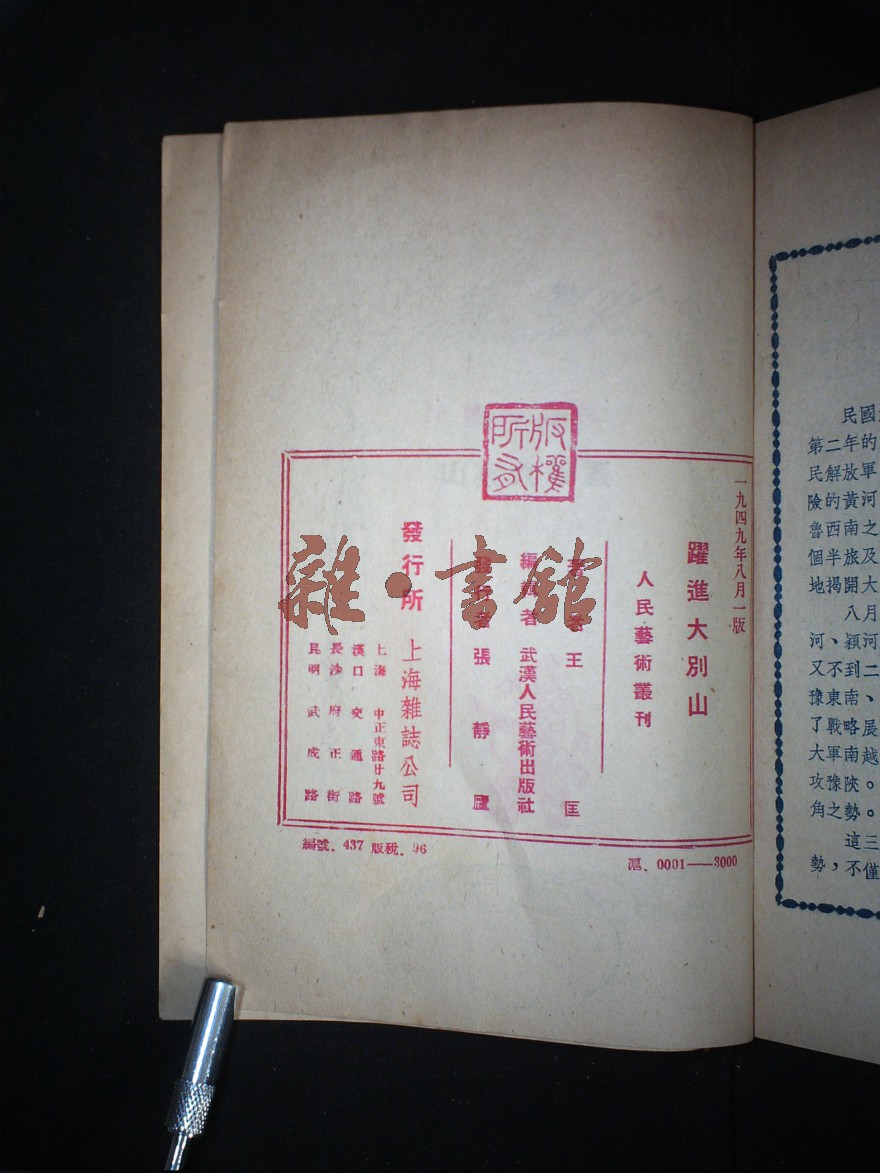 版權所有
一九四九年八月一版
躍進大別山
人民藝術叢刊
著者 王匡
編輯者 武漢人民藝術出版社
發行者 張靜廬
發行所 上海雜誌公司
上海 中正東路廿九號
漢口 交通路
長沙 府正街
昆明 武成路
編號. 437 版稅. 96
滬. 0001——3000
雜·書館
民國
第二年的
民解放軍
險的黃河
魯西南之
個半旅及
地揭開大
八月
河、潁河
又不到二
豫東南、
了戰略展
大軍南越
攻豫陝。
角之勢。
這三
勢，不僅